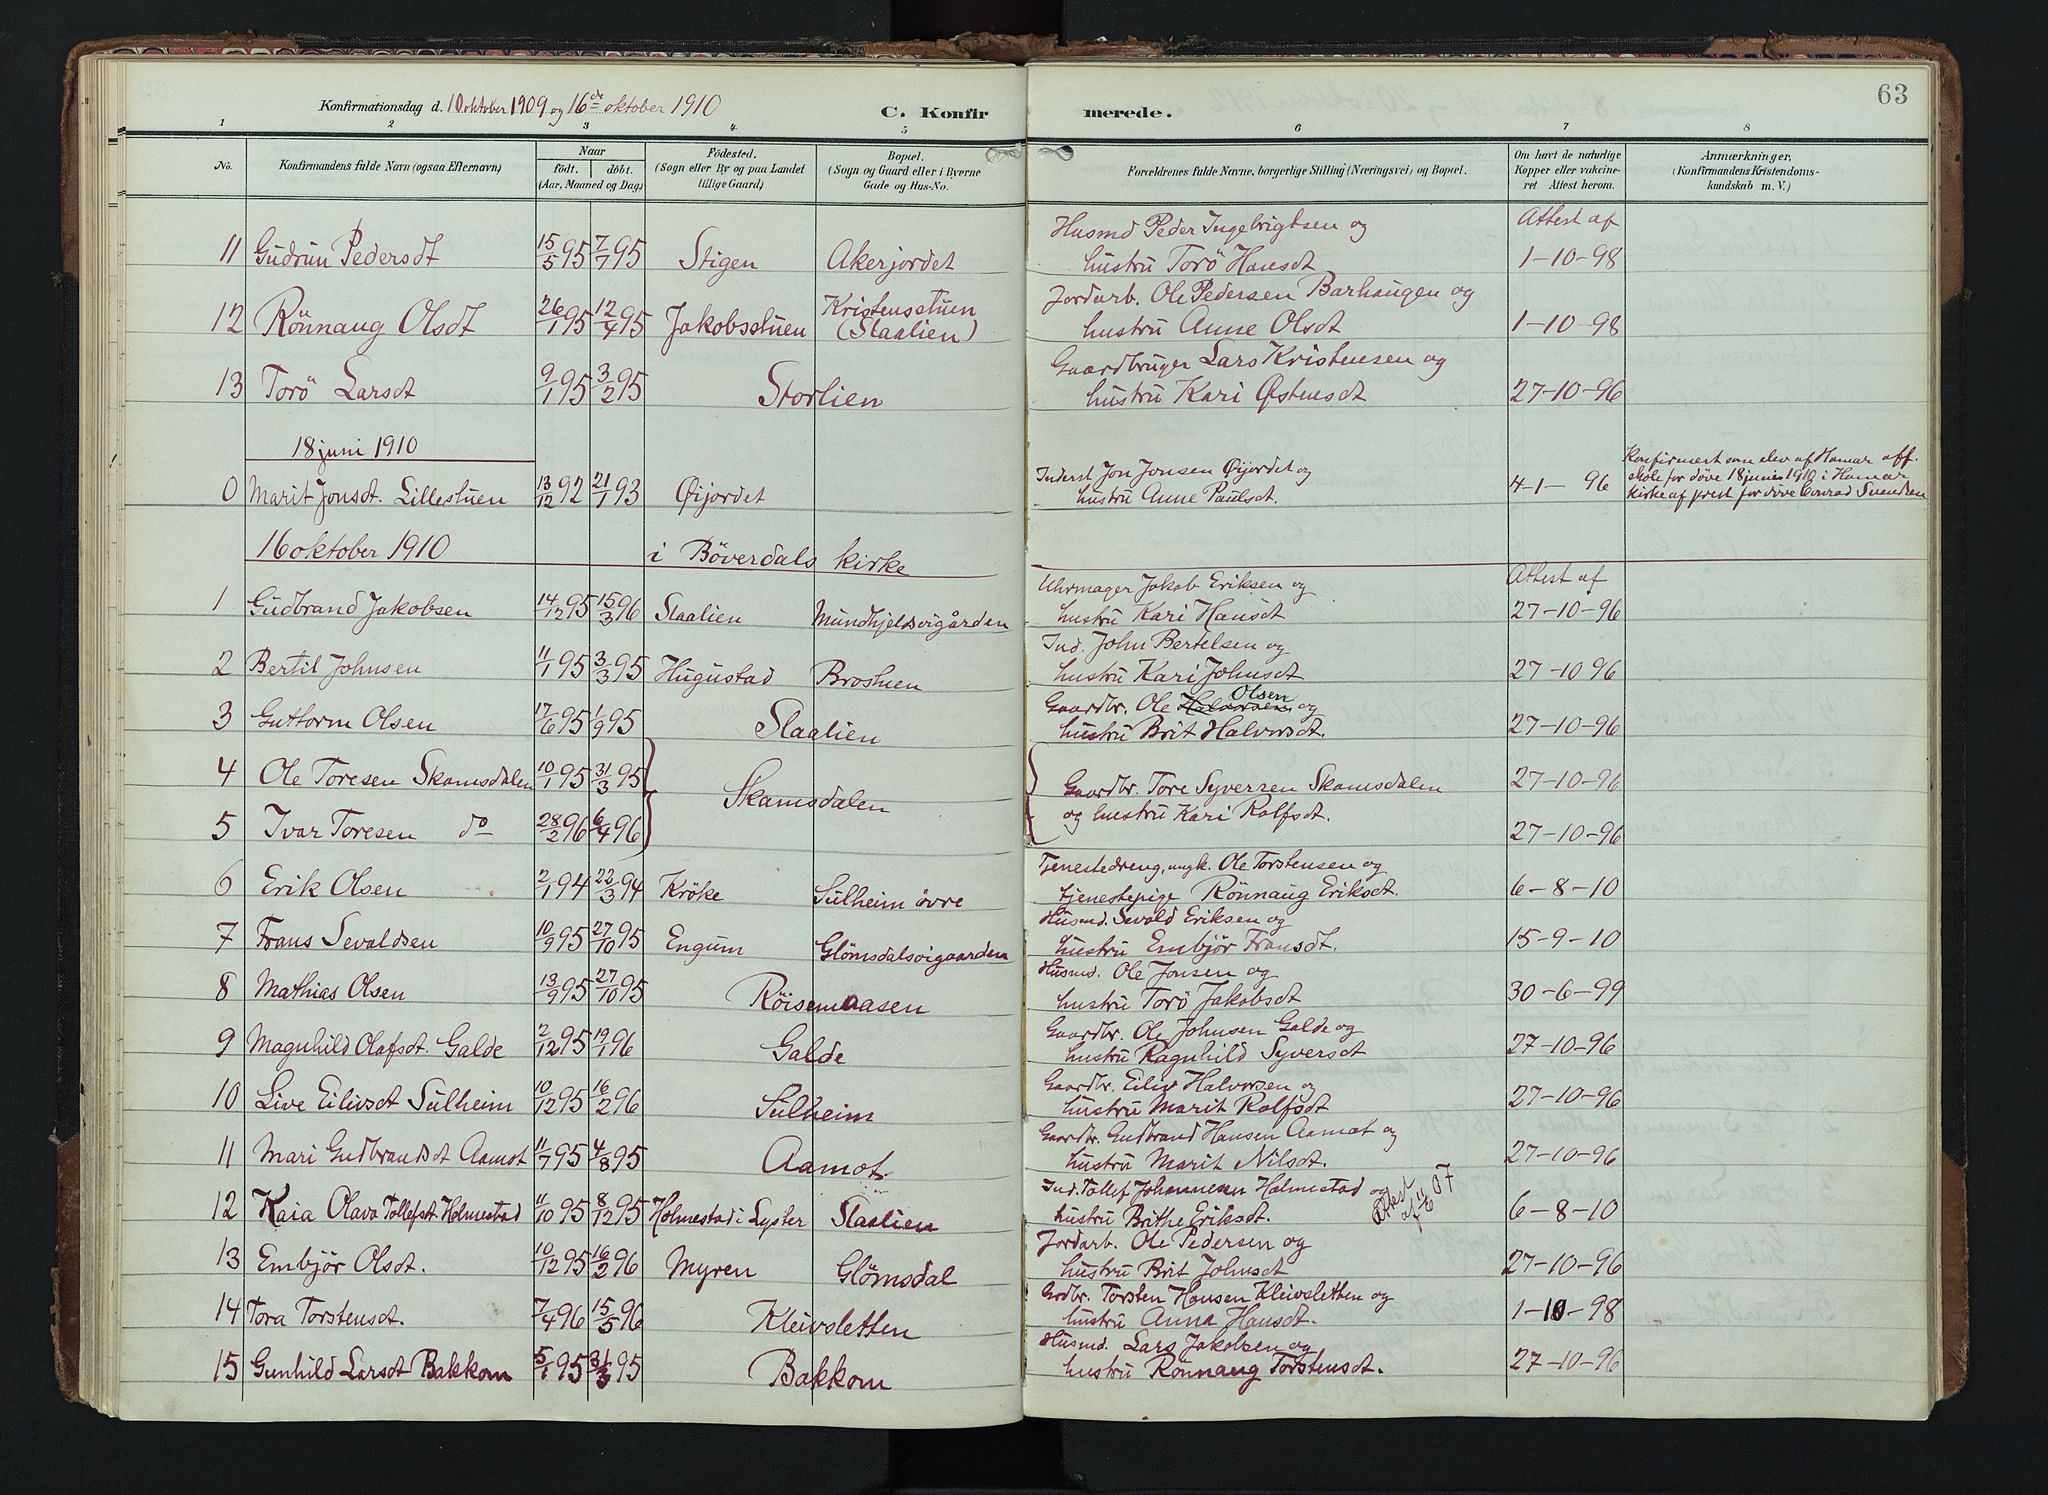 63
Konfirmationsdag d. 10 oktober 1909 og 16de oktober 1910
C. Konfirmerede.
1 2 3 4 5 6 7 8
No. Konfirmandens fulde Navn (ogsaa Efternavn) Naar født. døbt. (Aar, Maaned og Dag) Fødested. (Sogn eller By og paa Landet tillige Gaard) Bopæl. (Sogn og Gaard eller i Byerne Gade og Hus-No. Forældrenes fulde Navne, borgerlige Stilling (Næringsvei) og Bopæl. Om havt de naturlige Kopper eller vakcineret. Attest herom. Anmærkninger, (Konfirmandens Kristendomskundskab m. V.)
Husmd Peder Ingebrigtsen og Attest af
11 Gudrun Pedersdt 15/5 95 7/7 95 Stigen Akerjordet hustru Torö Hansdt 1-10-98
Kristensstuen Jordarb. Ole Pedersen Barhaugen og
12 Rönnaug Olsdt 26/1 95 12/4 95 Jakobsstuen (Slaalien) hustru Anne Olsdt 1-10-98
Gaardbruger Lars Kristensen og
13 Torö Larsdt 9/1 95 3/2 95 Storlien hustru Kari Østensdt 27-10-96
18 juni 1910
Inderst Jon Jonsen Øijordet og Konfirmert som elev af Hamar off.
0 Marit Jonsdt. Lillestuen 13/12 92 21/1 93 Øijordet hustru Anne Paulsdt. 4-1-96 skole for döve 18 juni 1910 i Hamar
kirke af prest for döve Conrad Svendsen
16 oktober 1910 i Böverdals kirke
Uhrmager Jakob Eriksen og Attest af
1 Gudbrand Jakobsen 14/12 95 15/3 96 Slaalien Mundhjeldsvigården hustru Kari Hansdt 27-10-96
Ind. John Bertelsen og
2 Bertil Johnsen 11/1 95 3/3 95 Hugustad Brostuen hustru Kari Johnsdt 27-10-96
Gaardbr. Ole Halvorsen Olsen og
3 Guttorm Olsen 17/6 95 1/9 95 Slaalien hustru Brit Halvorsdt. 27-10-96
4 Ole Toresen Skamsdalen 10/1 95 31/3 95 Skamsdalen Gaardbr. Tore Syversen Skamsdalen 27-10-96
og hustru Kari Rolfsdt.
5 Ivar Toresen do 28/2 96 6/4 96 27-10-96
Tjenestedreng, ungk. Ole Torstensen og
6 Erik Olsen 2/1 94 22/3 94 Kröke Sulheim övre tjenestepige Rönnaug Eriksdt. 6-8-10
Husmd. Sevald Eriksen og
7 Frans Sevaldsen 10/9 95 27/10 95 Engum Glömsdalsvigaarden hustru Embjör Fransdt. 15-9-10
Husmd. Ole Jonsen og
8 Mathias Olsen 13/9 95 27/10 95 Röisemoasen hustru Torö Jakobsdt 30-6-99
Gaardbr. Ole Johnsen Galde og
9 Magnhild Olafsdt. Galde 2/12 95 19/1 96 Galde hustru Ragnhild Syversdt 27-10-96
Gaardbr. Eiliv Halvorsen og
10 Live Eilivsdt Sulheim 10/12 95 16/2 96 Sulheim hustru Marit Rolfsdt 27-10-96
Gaardbr. Gudbrand Hansen Aamot og
11 Mari Gudbrandsdt Aamot 11/7 95 4/8 95 Aamot hustru Marit Nilsdt. 27-10-96
Ind. Tollef Johannesen Holmestad og Attest af 11/6 07
12 Kaia Olava Tollefsdt. Holmestad 11/10 95 8/12 95 Holmestad i Lyster Slaalien hustru Brithe Eriksdt. 6-8-10
Jordarb. Ole Pedersen og
13 Embjör Olsdt. 10/12 95 16/2 96 Myren Glömsdal hustru Brit Johnsdt 27-10-96
Grdbr. Torsten Hansen Kleivsletten og
14 Tora Torstensdt. 7/4 96 15/5 96 Kleivsletten hustru Anna Hansdt. 1-10-98
Husmd. Lars Jakobsen og
15 Gunhild Larsdt Bakkom 5/1 95 31/3 95 Bakkom hustru Rönnaug Torstensdt. 27-10-96